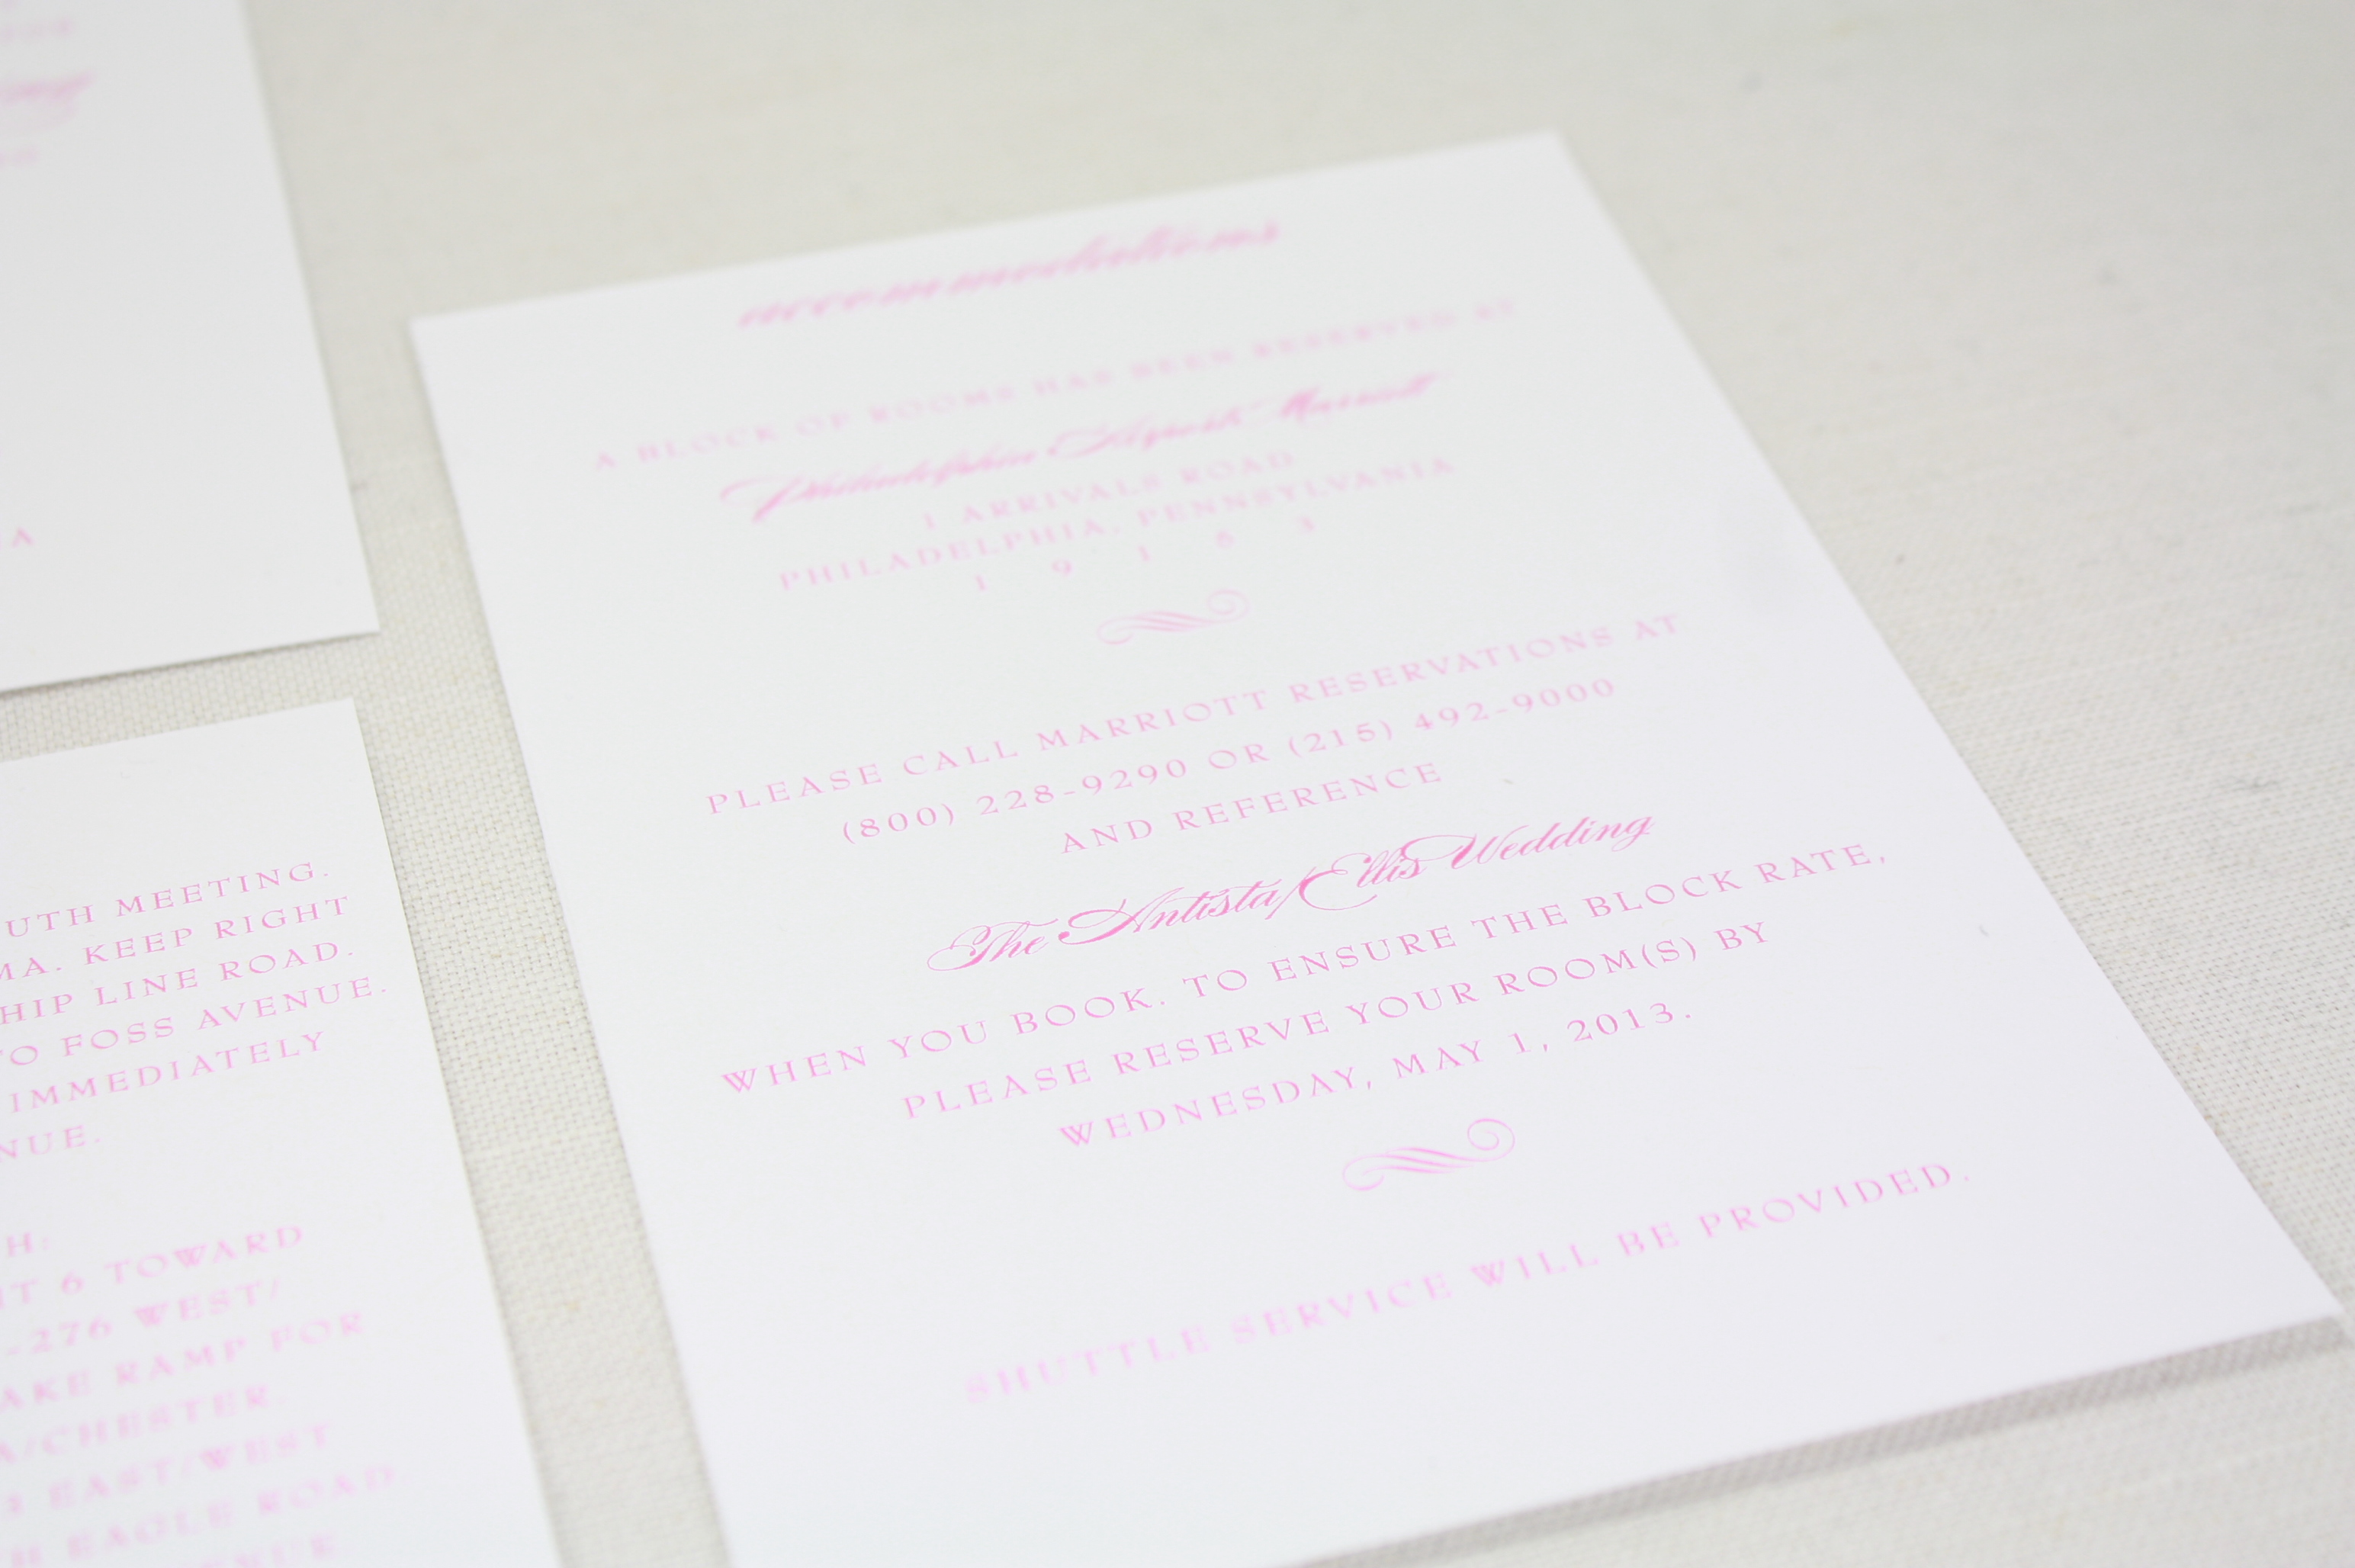 accommodations
A BLOCK OF ROOMS HAS BEEN RESERVED AT
Philadelphia Airport Marriott
1 ARRIVALS ROAD
PHILADELPHIA, PENNSYLVANIA
1 9 1 5 3
PLEASE CALL MARRIOTT RESERVATIONS AT
(800) 228-9290 OR (215) 492-9000
AND REFERENCE
The Antista/Ellis Wedding
WHEN YOU BOOK. TO ENSURE THE BLOCK RATE,
PLEASE RESERVE YOUR ROOM(S) BY
WEDNESDAY, MAY 1, 2013.
SHUTTLE SERVICE WILL BE PROVIDED.
UTH MEETING.
MA. KEEP RIGHT
HIP LINE ROAD.
TO FOSS AVENUE.
IMMEDIATELY
NUE.
H:
IT 6 TOWARD
-276 WEST/
AKE RAMP FOR
A/CHESTER
3 EAST/WEST
H EAGLE ROAD